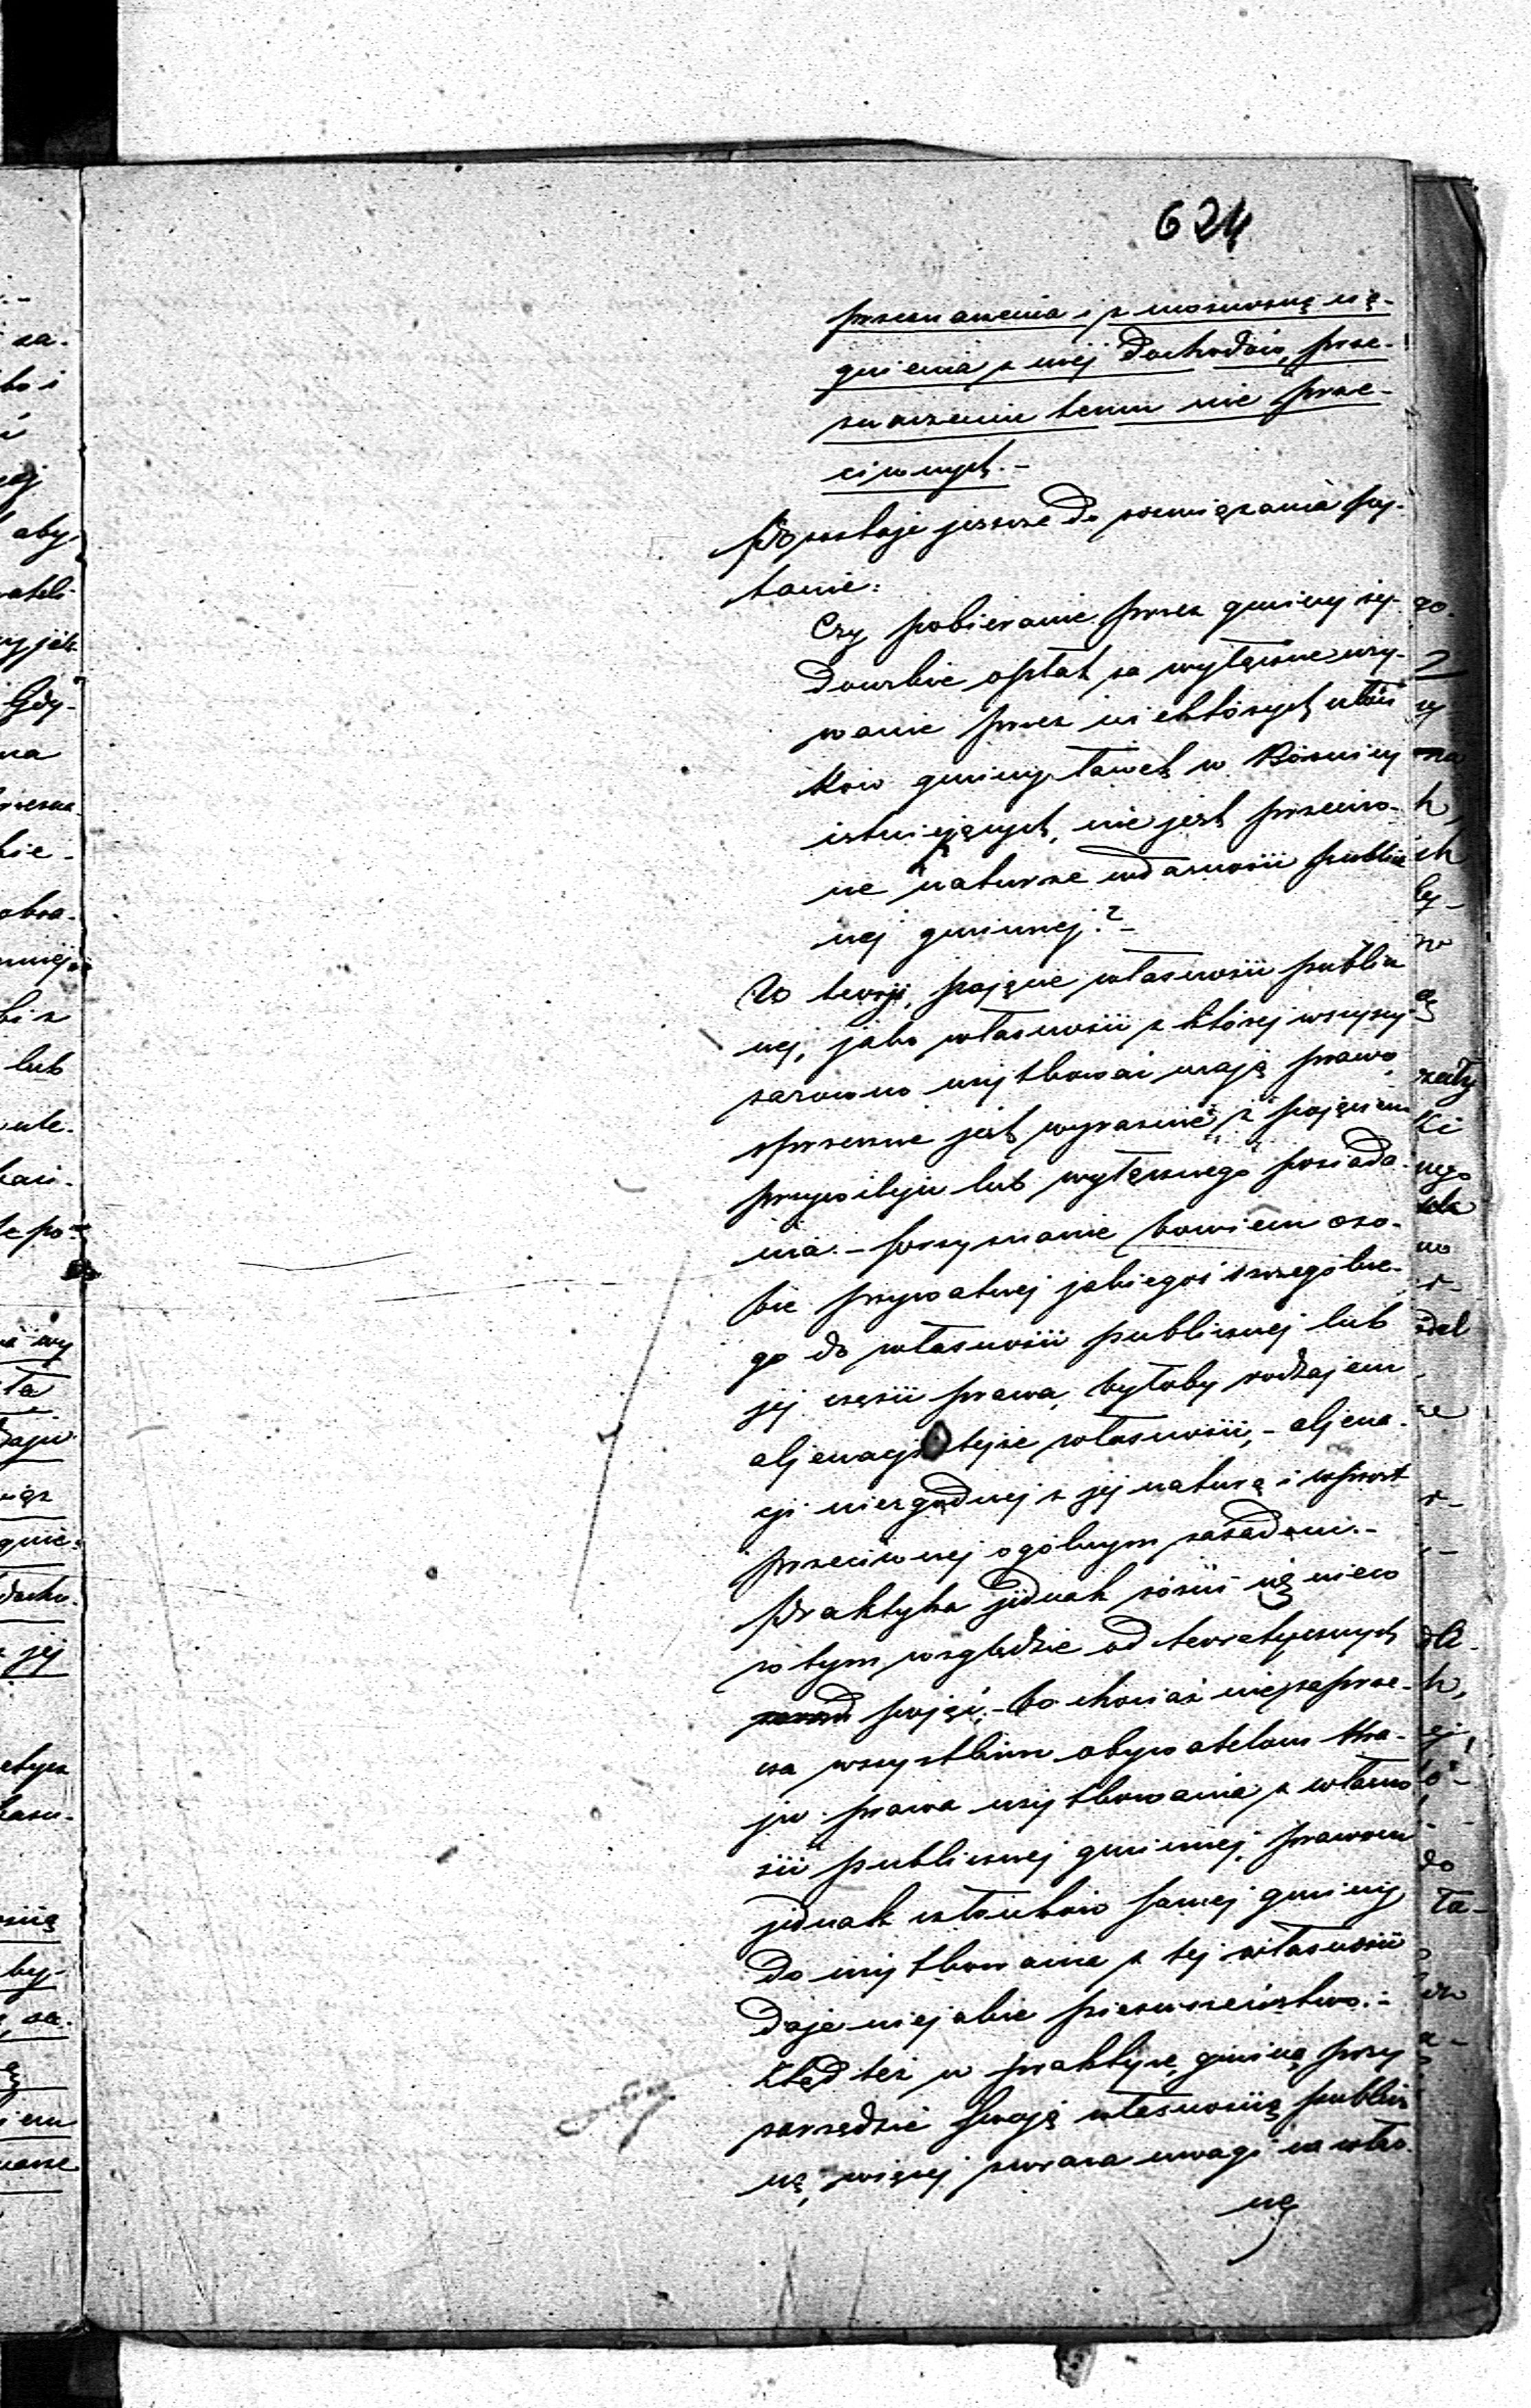 624
przeznaczenia i z możnością cią-
gnienia z niej dochodów, prze-
znaczeniu temu nie prze-
ciwnych. -
Pozostaje jeszcze do rozwiązania py-
tanie:
Czy pobieranie przez gminy ży-
dowskie opłat za wyłączne uży-
wanie przez niektórych człon
ków gminy ławek w Bóżnicy
istniejących, nie jest przeciw-
ne naturze własności public
nej gminnej? -
W teorji, pojęcie własności public
nej, jako własności z której wszyscy
zarówno użytkować mają prawo,
sprzeczne jest wyraźnie z pojęciem
przywileju lub wyłącznego posiada-
nia. - Przyznanie bowiem oso-
bie prywatnej jakiegoś szczególne-
go do własności publicznej lub
jej części prawa, byłoby rodzajem
aljenacji tejże własności, - aljena-
cji niezgodnej z jej naturą i wprost
przeciwnej ogólnym zasadom. -
Praktyka jednak różni się nieco
w tym względzie od teoretycznych
pojęć, - bo chociaż nie zaprze-
cza wszystkim obywatelom kra-
ju prawa użytkowania z własno
ści publicznej gminnej, prawom
jednak członków samej gminy
do użytkowania z tej własności
daje niejakie pierwszeństwo. -
Ztąd też w praktyce, gmina przy
zarządzie swoją własnością public
ną, więcej zwraca uwagi na włas-
ną